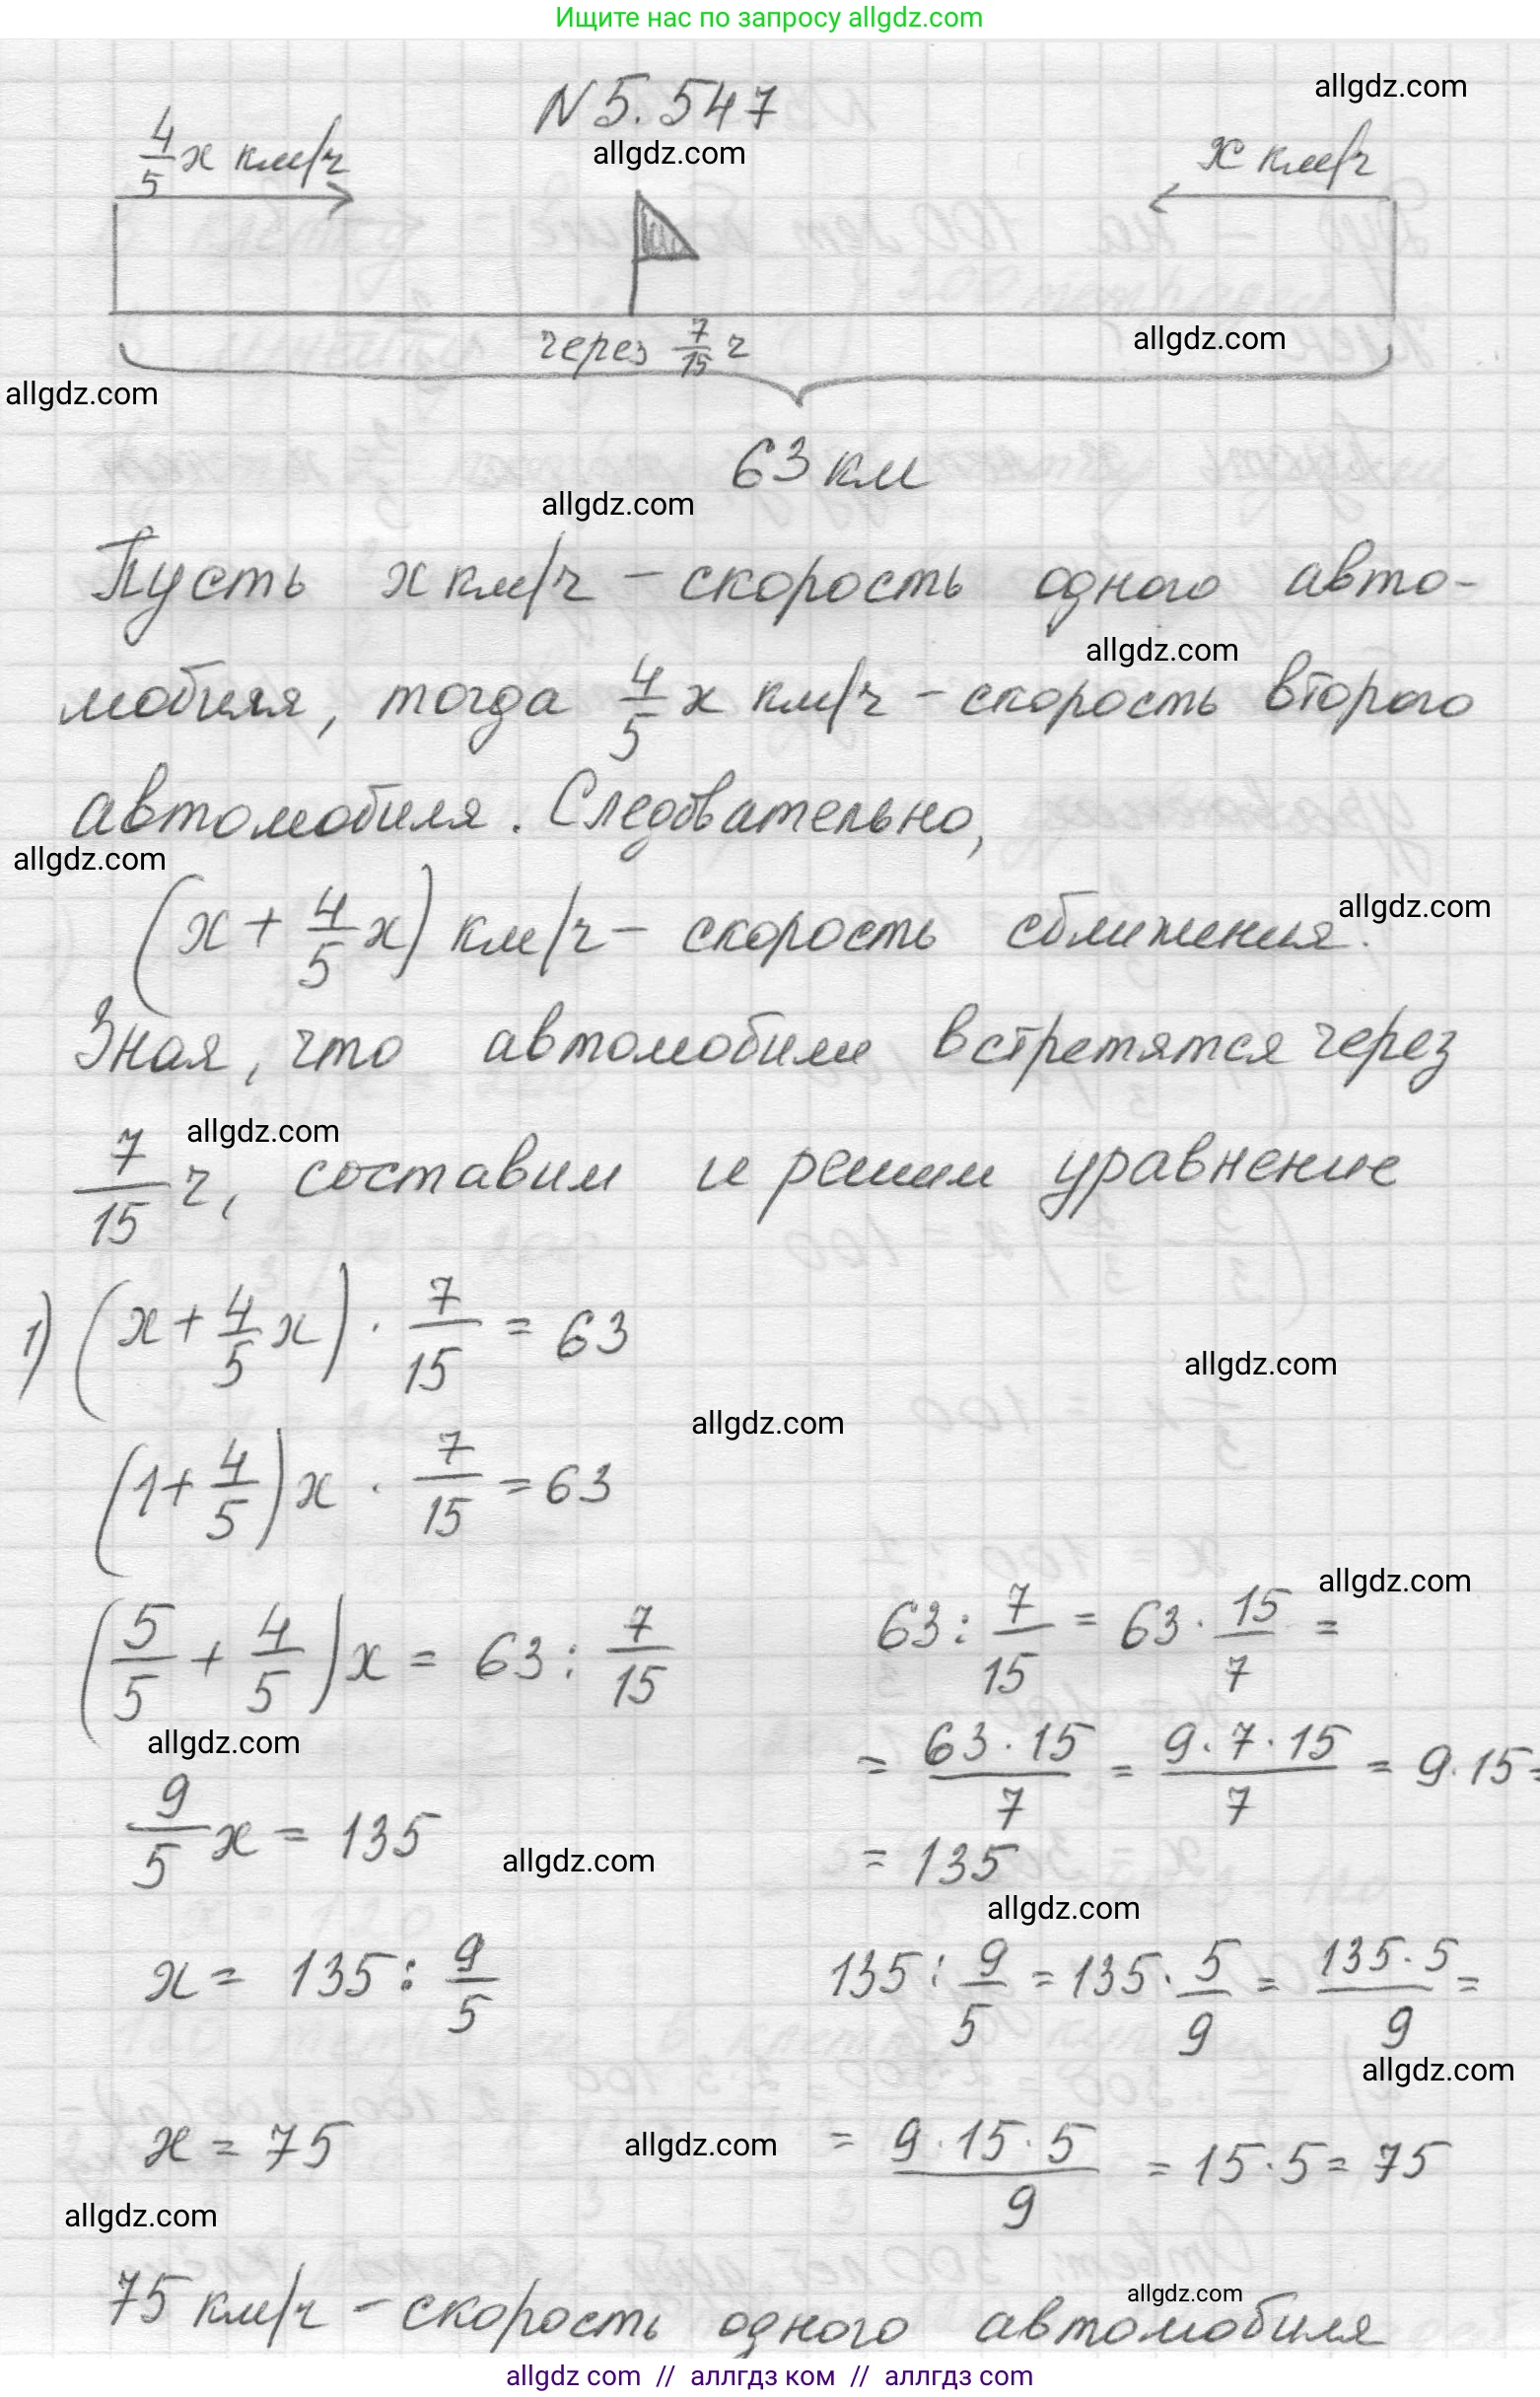 Ищите нас по запросу allgdz.com
allgdz.com
N 5.547
allgdz.com
4/5 x км/ч
x км/ч
через 7/15 ч
allgdz.com
allgdz.com
63 км
allgdz.com
Пусть x км/ч – скорость одного авто-
allgdz.com
мобиля, тогда 4/5 x км/ч – скорость второго
автомобиля. Следовательно,
allgdz.com
allgdz.com
(x + 4/5 x) км/ч – скорость сближения.
Зная, что автомобили встретятся через
allgdz.com
7/15 ч, составим и решим уравнение
1) (x + 4/5 x) · 7/15 = 63
allgdz.com
allgdz.com
(1 + 4/5) x · 7/15 = 63
allgdz.com
(5/5 + 4/5) x = 63 : 7/15
63 : 7/15 = 63 · 15/7 =
allgdz.com
= 63 · 15/7 = 9 · 7 · 15/7 = 9 · 15 =
9/5 x = 135
= 135
allgdz.com
allgdz.com
x = 135 : 9/5
135 : 9/5 = 135 · 5/9 = 135 · 5/9 =
allgdz.com
x = 75
allgdz.com
= 9 · 15 · 5/9 = 15 · 5 = 75
allgdz.com
allgdz.com
75 км/ч – скорость одного автомобиля
allgdz.com // аллгдз ком // аллгдз.com